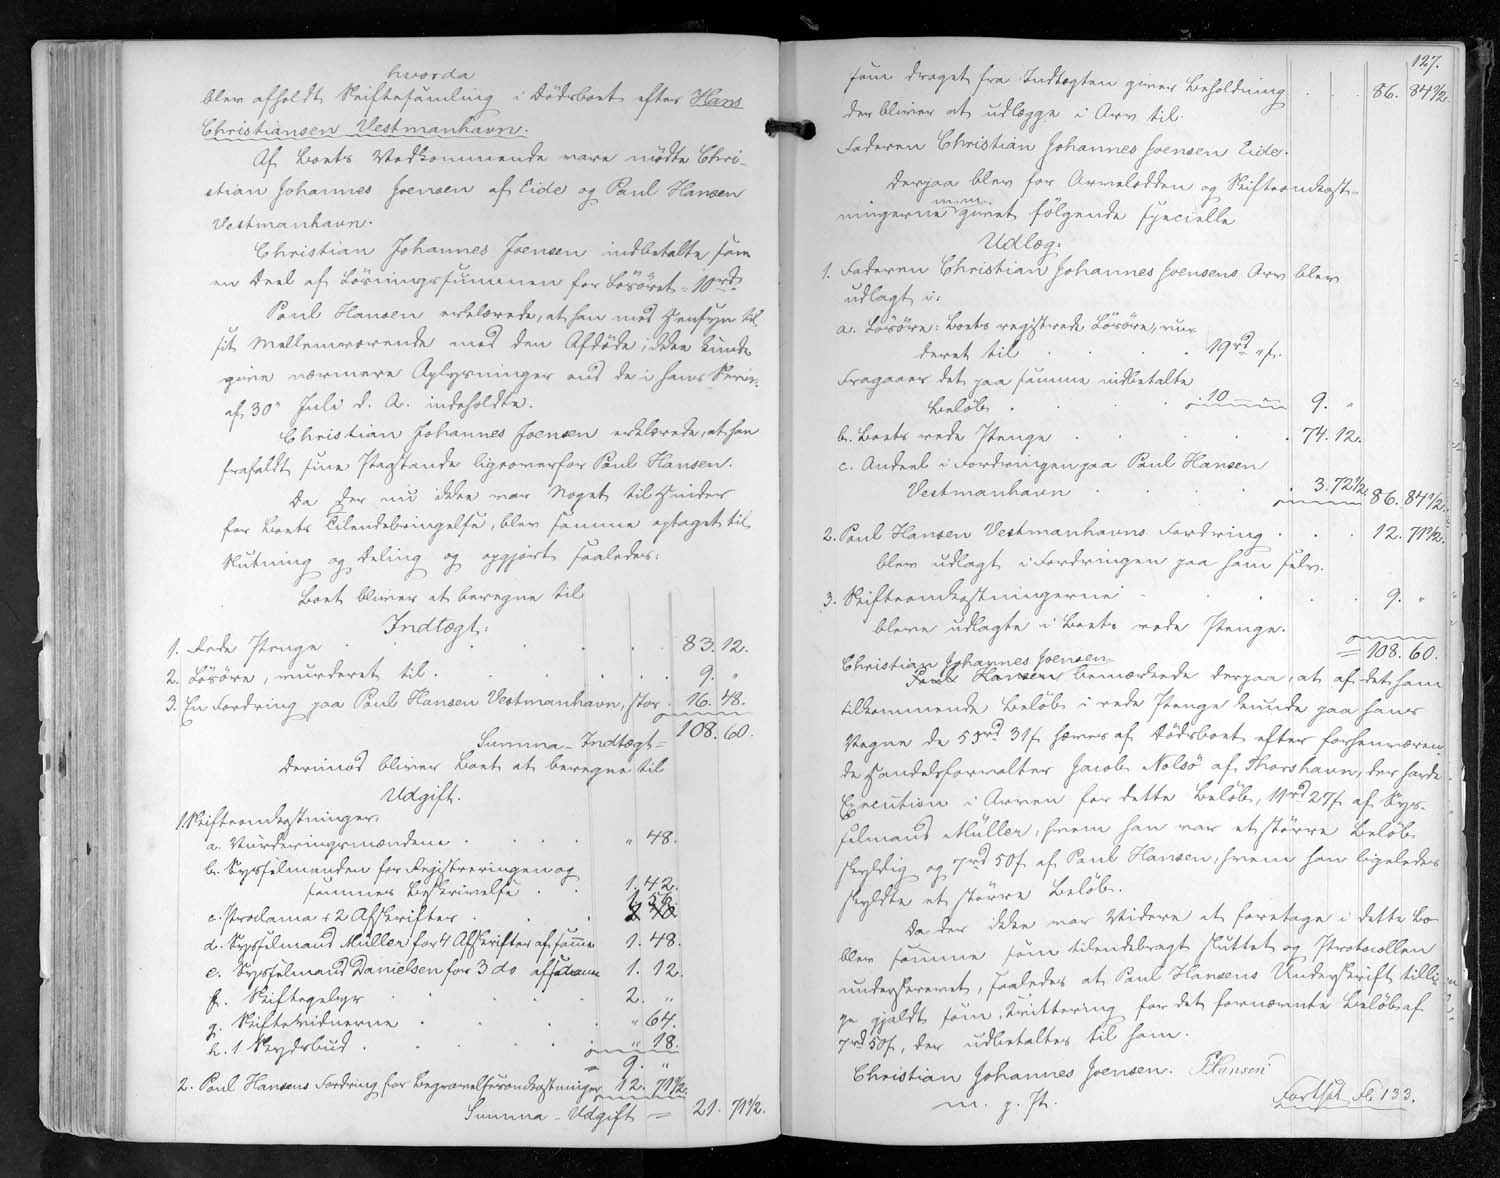 hvorda
blev afholdt Skiftesamling i Dødsboet efter Hans
Christiansen Vestmanhavn.
Af Boets Vedkommende vare mødte Chri-
stian Johannes Joensen af Eide og Paul Hansen
Vestmanhavn.
Christian Johannes Joensen indbetalte som
en Deel af Løsningssummen for Løsøret = 10rd.
Paul Hansen erklærede, at han med Hensyn til
sit Mellemværende med den Afdøde, ikke kunde
give nærmere Oplysninger end de i hans Skriv.
af 30" Juli d. A. indeholdte.
Christian Johannes Joensen erklærede, at han
frafaldt sine Paastande ligeoverfor Paul Hansen.
Da der nu ikke var Noget til Hinder
for Boets Tilendebringelse, blev samme optaget til
Slutning og Deling og opgjort saaledes:
Boet bliver at beregne til
Indtægt:
1. Rede Penge . . . . . . 83. 12.
2. Løsøre, vurderet til . . . . . 9. "
3. En Fordring paa Paul Hansen Vestmanhavn, stor . 16. 48.
Summa - Indtægt = 108. 60.
Derimod bliver Boet at beregne til
Udgift.
1. Skifteomkostninger,
a. Vurderingsmændene . . . . " 48.
b. Sysselmanden for Registreringen og
sammes Beskrivelse . . 1. 42.
c. Proclama + 2 Afskrifter . . . 1. 56.
d. Sysselmand Müller for 4 Afskrifter af samme 1. 48.
e. Sysselmand Danielsen for 3 do af samme 1. 12.
f. Skiftegebyr . . . . 2. "
g. Skiftevidnerne . . . . " 64.
h. 1 Skydsbud . . . . " 18.
= 9. "
2. Paul Hansens Fordring for Begravelsesomkostninger 12. 71½.
Summa - Udgift = 21. 71½.
127.
som draget fra Indtægten giver Beholdning . . . 86. 84½.
der bliver at udlægge i Arv til.
Faderen Christian Johannes Joensen Eide.
Derpaa blev for Arvelodden og Skifteomkost-
ningerne m.m. givet følgende specielle
Udlæg.
1. Faderen Christian Johannes Joensens Arv blev
udlagt i:
a. Løsøre: Boets registrede Løsøre, vur
deret til . . . . 19rd " s.
Fragaaer det paa samme indbetalte
Beløb . . . . 10 " 9. "
b. Boets rede Penge . . . . . 74. 12.
c. Andeel i Fordringen paa Paul Hansen
Vestmanhavn . . . . 3. 72½. 86. 84½.
2. Paul Hansen Vestmanhavns Fordring . . . 12. 71½.
blev udlagt i Fordringen paa ham selv.
3. Skifteomkostningerne . . . . . 9. "
bleve udlagte i Boets rede Penge.
= 108. 60.
Christian Johannes Joensen
Paul Hansen bemærkede derpaa, at af det ham
tilkommende Beløb i rede Penge kunde paa hans
Vegne de 53rd 31s hæves af Dødsboet efter forhenværen
de Handelsforvalter Jacob Nolsø af Thorshavn, der havde
Execution i Arven for dette Beløb, 11rd 27s af Sys-
selmand Müller, hvem han var et større Beløb
skyldig og 7rd 50s af Paul Hansen, hvem han ligeledes
skyldte et større Beløb.
Da der ikke var Videre at foretage i dette Bo
blev samme som tilendebragt sluttet og Protocollen
underskrevet, saaledes at Paul Hansens Underskrift tilli-
ge gjaldt som Kvittering for det fornævnte Beløb af
7rd 50s, der udbetaltes til ham.
Christian Johannes Joensen. PHansen
m. p. P.
Fortsat Fl 133.